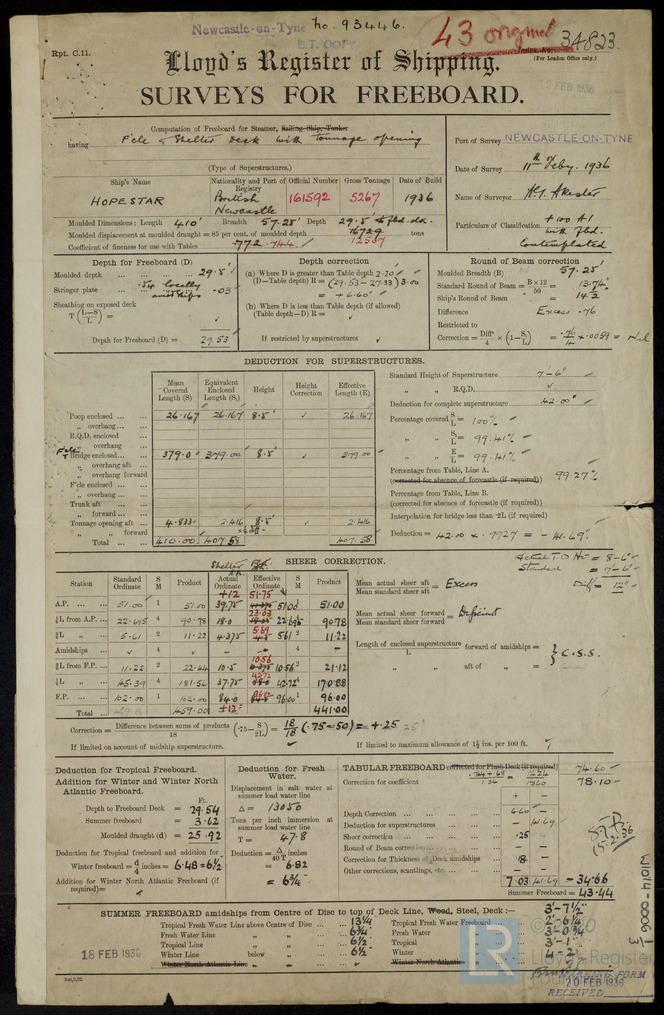 Newcastle-on-Tyne No. 93446.
B.T. COPY
43 original
Index. No. 34823.
(For London Office only.)
Rpt. C.11.
Lloyd's Register of Shipping.
2 FEB 1936
SURVEYS FOR FREEBOARD.
Computation of Freeboard for Steamer, Sailing Ship, Tanker
having F'cle & Shelter Deck with Tonnage opening
(Type of Superstructures.)
Port of Survey NEWCASTLE-ON-TYNE
Date of Survey 11th Feby. 1936
Name of Surveyor
Particulars of Classification +100 A1
with fbd.
Contemplated
Ship's Name Nationality and Port of Registry Official Number Gross Tonnage Date of Build
HOPESTAR British Newcastle 161592 5267 1936
Moulded Dimensions: Length 410' Breadth 57.25' Depth 29.5' to fbd. dk.
Moulded displacement at moulded draught = 85 per cent. of moulded depth 16729 tons
12567
Coefficient of fineness for use with Tables .772 .744
Depth for Freeboard (D)
Moulded depth ... 29.5'
Stringer plate ... .54 locally amidships .03
Sheathing on exposed deck
T (L−S/L) =
Depth for Freeboard (D) = 29.53
Depth correction
(a) Where D is greater than Table depth 2.20
(D—Table depth) R = (29.53 - 27.33) 3.00
= + 6.60"
(b) Where D is less than Table depth (if allowed)
(Table depth—D) R =
If restricted by superstructures
Round of Beam correction
Moulded Breadth (B) 57.25'
Standard Round of Beam = B×12/50 = 13.74"
Ship's Round of Beam = 14.2
Difference Excess .76
Restricted to
Correction = Diff/4 × (1−S/L) = .76/4 × .0059 = Nil
DEDUCTION FOR SUPERSTRUCTURES.
Mean Covered Length (S) Equivalent Enclosed Length (S1) Height Height Correction Effective Length (E)
Poop enclosed ... 26.167 26.167 8.5' 26.167
„ overhang ...
R.Q.D. enclosed
„ overhang
F'cle & Bridge enclosed... 379.0 379.00 8.5' 379.00
„ overhang aft ...
„ overhang forward
F'cle enclosed ...
„ overhang ...
Trunk aft ...
„ forward ...
Tonnage opening aft 4.833 2.416 8.5' 2.416
„ „ forward
Total ... 410.00 407.58 407.58
Standard Height of Superstructure 7-6"
„ „ R.Q.D.
Deduction for complete superstructure 42.00"
Percentage covered S/L = 100%
„ „ S1/L = 99.41%
„ „ E/L = 99.41%
Percentage from Table, Line A. 99.27%
(corrected for absence of forecastle (if required))
Percentage from Table, Line B.
(corrected for absence of forecastle (if required))
Interpolation for bridge less than ·2L (if required)
Deduction = 42.00 × .9927 = - 41.69"
Actual T.O. Ht = 8-6"
Standard = 7-6"
Diff = 12"
SHEER CORRECTION.
Station Standard Ordinate S M Product Actual Ordinate Effective Ordinate S M Product
A.P. ... 51.00 1 51.00 39.75 51.75 51.00 1 51.00
⅙L from A.P. ... 22.695 4 90.78 18.0 23.03 22.695 4 90.78
⅓L „ 5.61 2 11.22 4.375 5.69 5.61 2 11.22
Amidships ... 4 - - 4 -
⅓L from F.P. ... 11.22 2 22.44 10.5 10.56 10.56 2 21.12
⅙L „ 45.39 4 181.56 37.75 42.72 42.72 4 170.88
F.P. ... 102.00 1 102.00 84.0 96.00 1 96.00
Total ... 459.00 +12" 441.00
Mean actual sheer aft / Mean standard sheer aft = Excess
Mean actual sheer forward / Mean standard sheer forward = Deficient
Length of enclosed superstructure / L forward of amidships =
„ aft of „ = } C.S.S.
Correction = Difference between sums of products / 18 (·75 − S/2L) = 18/18 (.75-.50) = + .25
If limited on account of midship superstructure.
If limited to maximum allowance of 1½ ins. per 100 ft.
Deduction for Tropical Freeboard.
Addition for Winter and Winter North Atlantic Freeboard.
Ft.
Depth to Freeboard Deck = 29.54
Summer freeboard = 3.62
Moulded draught (d) = 25.92
Deduction for Tropical freeboard and addition for
Winter freeboard = d/4 inches = 6.48 = 6½
Addition for Winter North Atlantic Freeboard (if required) =
Deduction for Fresh Water.
Displacement in salt water at summer load water line
Δ = 13050
Tons per inch immersion at summer load water line
T = 47.8
Deduction = Δ/40T inches
= 6.82
= 6¾"
TABULAR FREEBOARD corrected for Flush Deck (if required) 74.60
Correction for coefficient .744+.68/1.36 = 1.424/1.360 78.10
+ -
Depth Correction ... 6.60 -
Deduction for superstructures ... - 41.69
Sheer correction ... .25 -
Round of Beam correction ... - -
Correction for Thickness of Deck amidships .18 -
Other corrections, scantlings, etc. ... - -
7.03 41.69 - 34.66
Summer Freeboard = 43.44
SUMMER FREEBOARD amidships from Centre of Disc to top of Deck Line, Wood, Steel, Deck:— 3'-7½"
Tropical Fresh Water Line above Centre of Disc ... 13¼ Tropical Fresh Water Freeboard 2'-6¼"
Fresh Water Line „ „ 6¾" Fresh Water „ 3'-0¾"
Tropical Line „ „ 6½" Tropical „ 3'-1"
Winter Line below „ 6½" Winter „ 4'-2"
Winter North Atlantic Line „ „ - Winter North Atlantic „
15.2.36
21014-0006 1/3
18 FEB 1936
20 FEB 1936
FORM
RECEIVED
LR
Lloyd's Register
Foundation